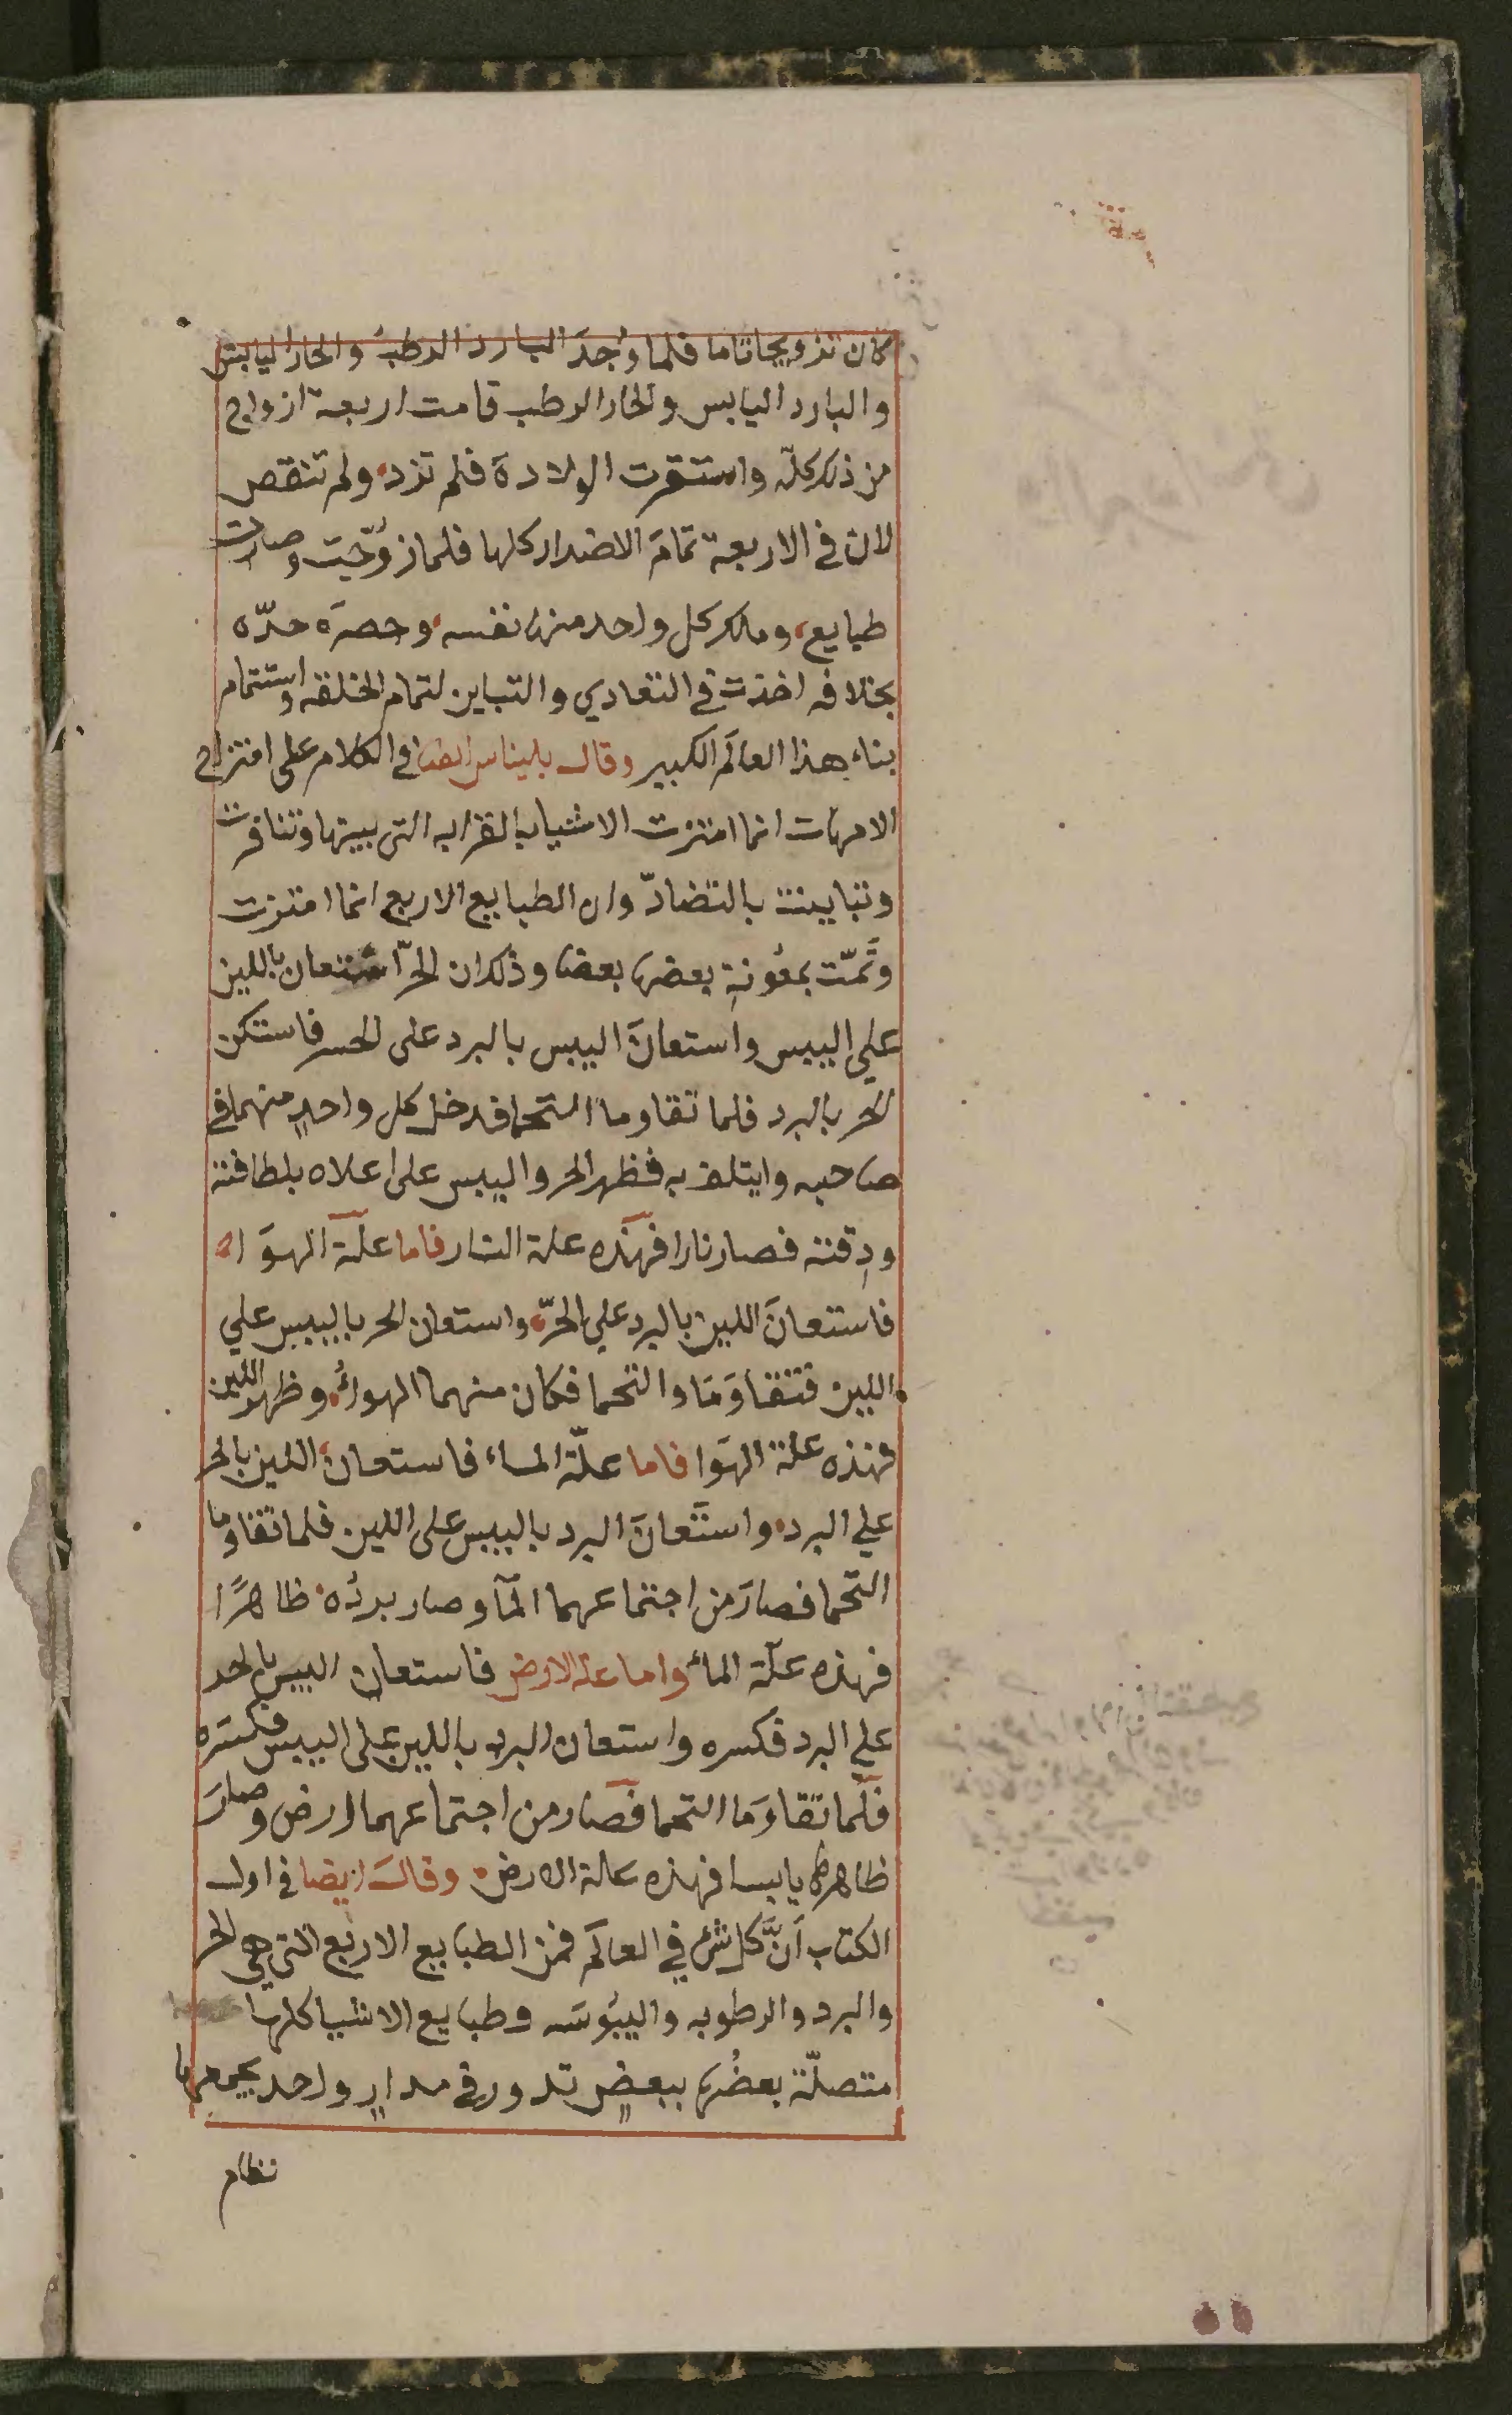 كان تزويجا تاما فلما وُجِدَ البارد الرطبُ والحار اليابس
والبارد اليابس والحار الرطب قامت اربعة ازواج
من ذلك كلّه واستقرت الولادة فلم تزد ولم تنقص
لان في الاربعة تمامَ الاضداد كلها فلما زُوّجت وصارت
طبايع، وملك كل واحد منها نفسه وحصرَه حدّه
بخلافه اخذت في التعادي والتباين لتمام الخلقه واستتمام
بناء هذا العالَم الكبير وقال بليناس ايضا في الكلام على امتزاج
الامهات انما امتزجت الاشيا بالقرابه التى بينها وتنافرت
وتباينت بالتضادّ وان الطبايع الاربع انما امتزجت
وتَمّت بمعُونةِ بعضها بعضا وذلك ان الحرّ استعان باللين
علي اليبس واستعانَ اليبس بالبرد على الحر فاستكن
الحر بالبرد فلما تقاوما التحما فدخل كل واحدٍ منهما في
صاحبه وايتلف به فظهر الحر واليبس على اعلاه بلطافته
ودِقته فصار نارا فهذه علة النار فاما علّة الهوَاء
فاستعانَ اللين بالبرد علي الحرّ واستعان الحر باليبس علي
اللين فتقاوَمَا والتحما فكان منهما الهواءُ وظهر اللين
فهذه علة الهوَا فاما علّة الماء فاستعان اللين بالحر
علي البرد واستَعانَ البرد باليبس على اللين فلما تقاوما
التحما فصارَ من اجتماعهما المآ وصار بردُه ظاهرًا
فهذه علّة الماء واما علة الارض فاستعان اليبس بالحر
علي البرد فكسره واستعان البرد باللين على اليبس فكسَره
فلّما تقاوَما التحما فصار من اجتماعهما ارض وصارَ
ظاهرها يابسا فهذه علة الارض وقالَ ايضا في اول
الكتاب اَنَّ كل شئ في العالَم فمن الطبايع الاربع التى هي الحر
والبرد والرطوبه واليبُوسَه وطبايع الاشيا كلها
متصلّة بعضُها ببعضٍ تدور في مدارٍ واحد يجمعها
نظام